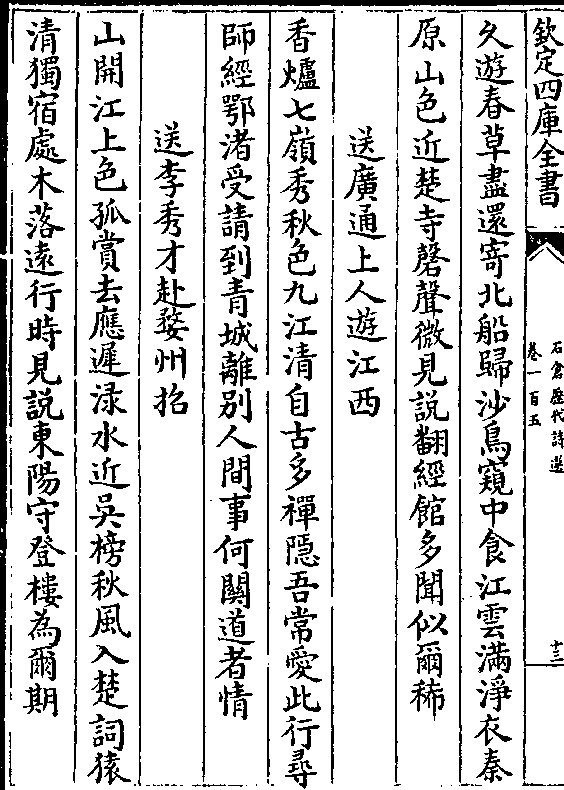 欽定四庫全書
石倉歷代詩選
卷一百五
十三
久遊春草盡還寄北船歸沙鳥窺中食江雲滿淨衣秦
原山色近楚寺磬聲微見說翻經館多聞似爾稀
送廣通上人遊江西
香爐七嶺秀秋色九江清自古多禪隱吾常愛此行尋
師經鄂渚受請到青城離別人間事何關道者情
送李秀才赴婺州招
山開江上色孤賞去應遲渌水近吳榜秋風入楚詞猿
清獨宿處木落遠行時見説東陽守登樓為爾期